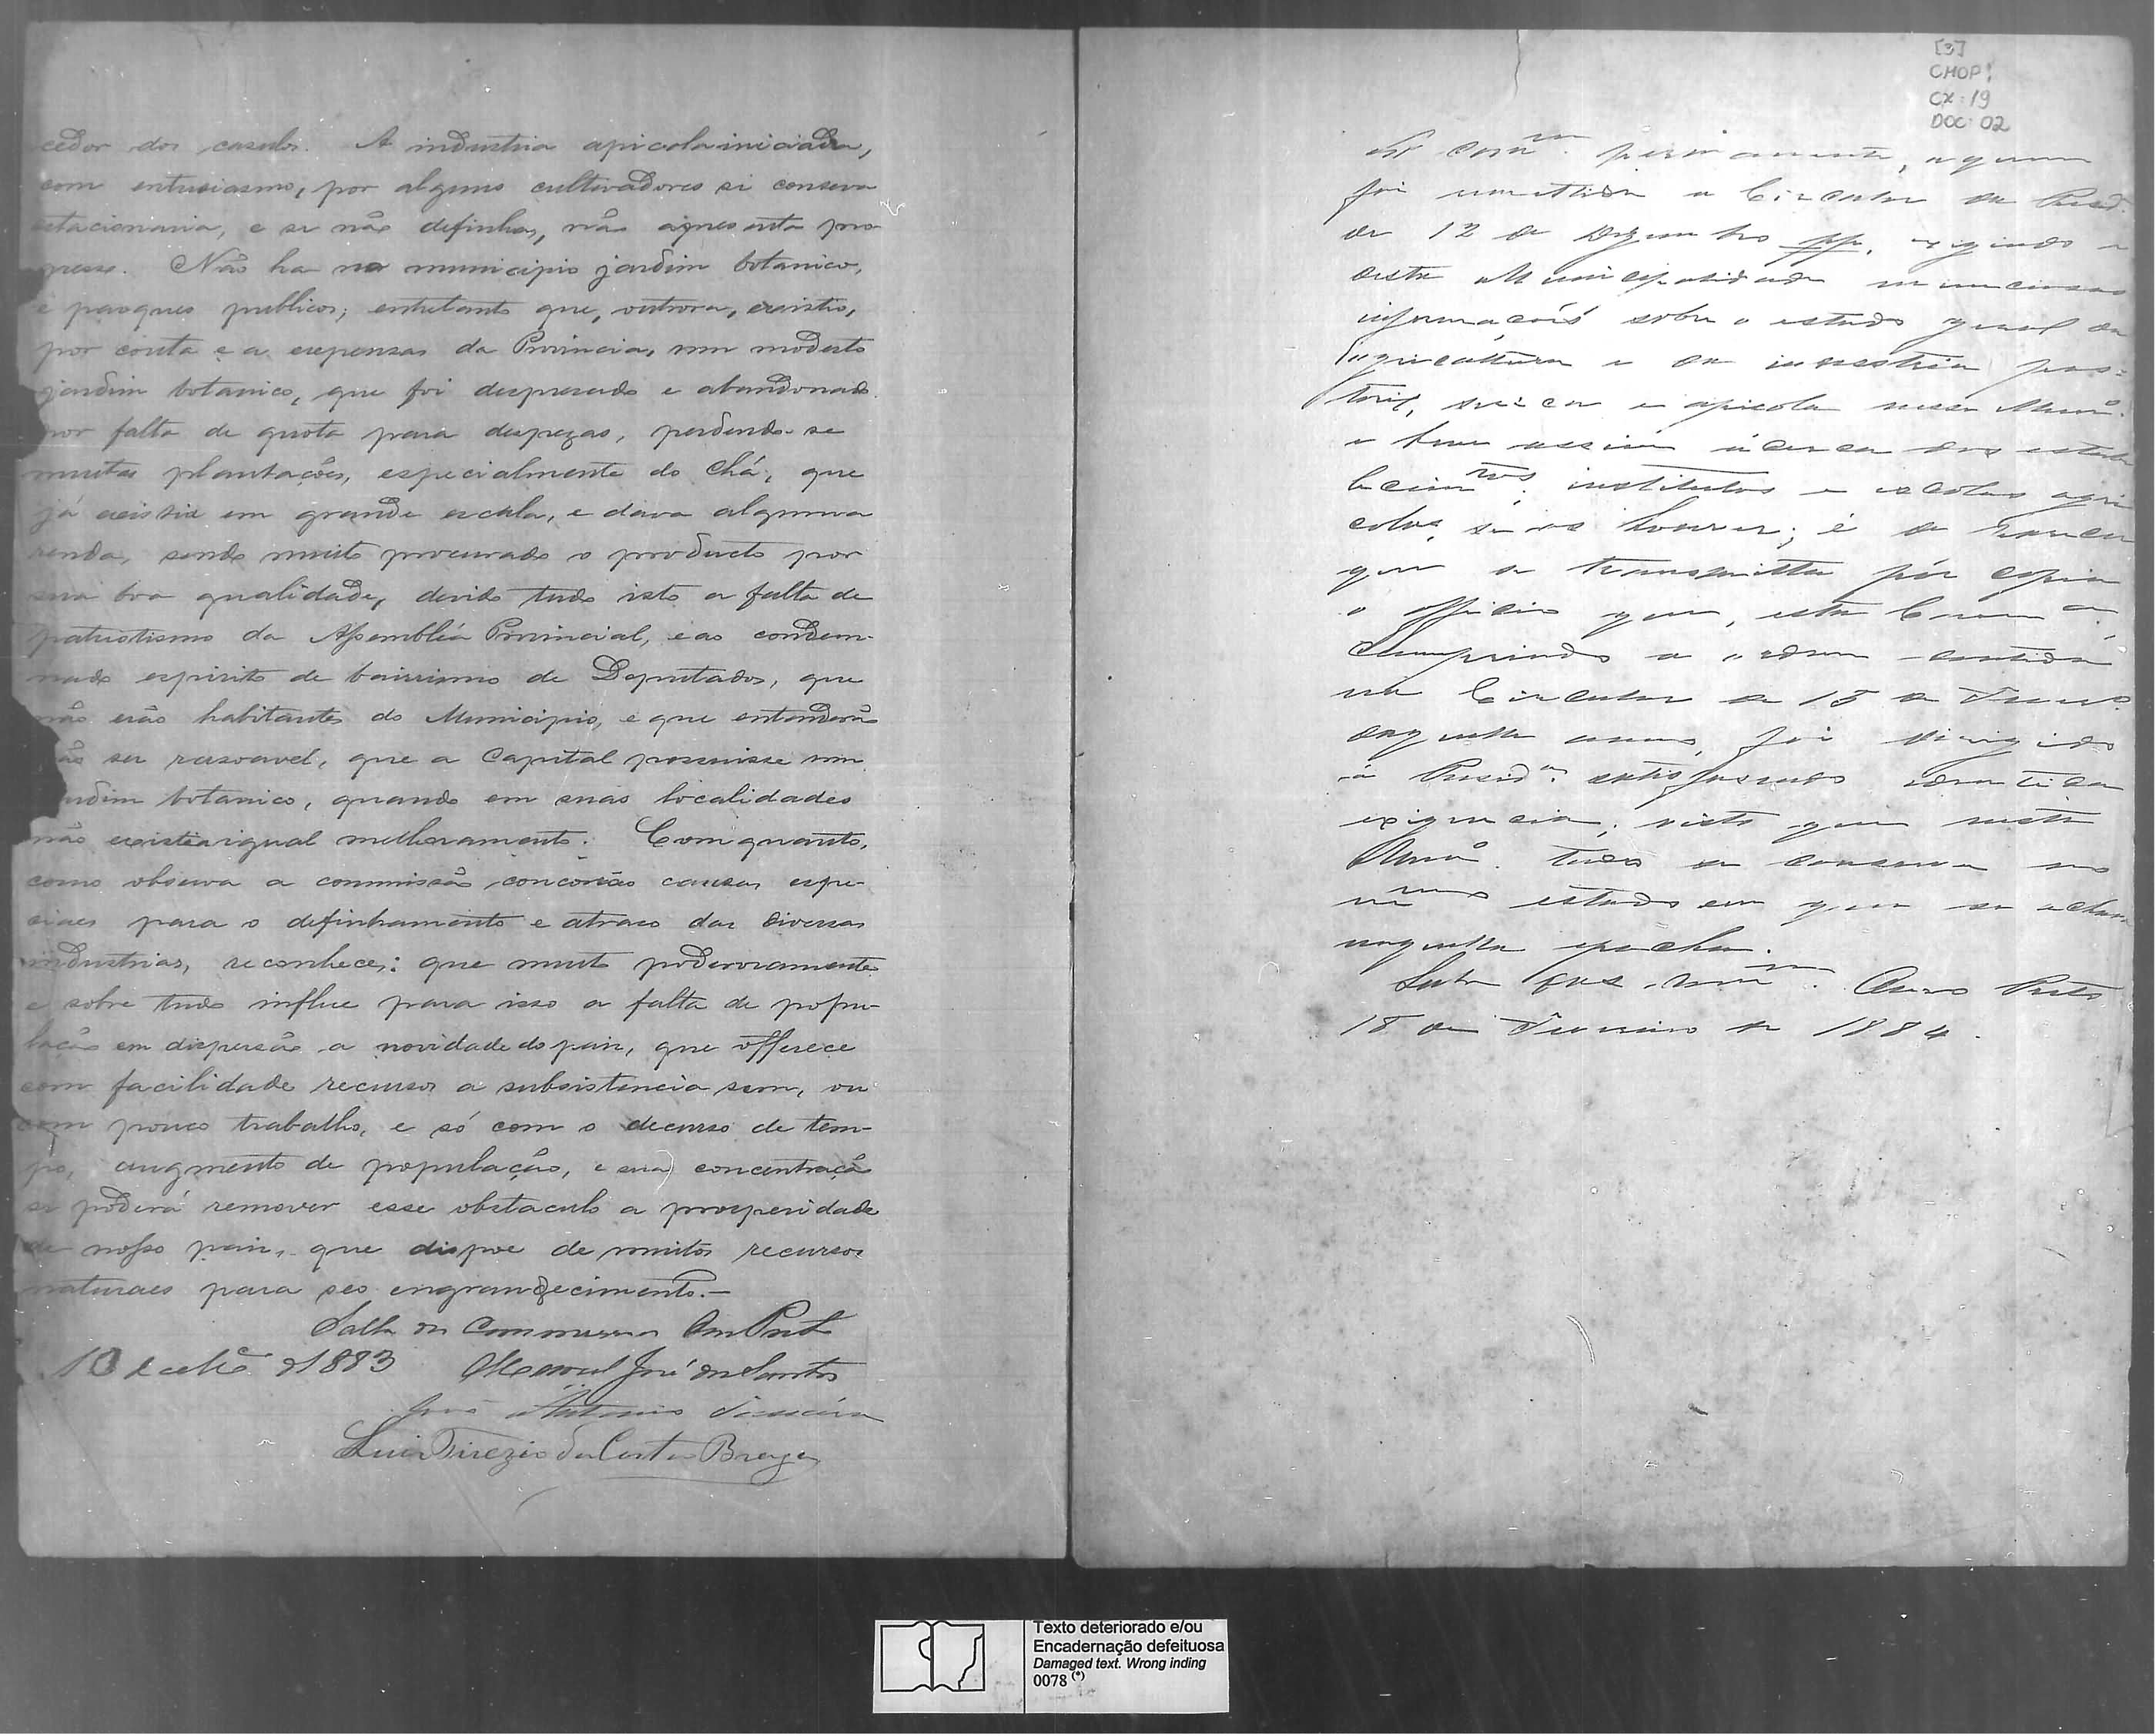 cedor dos casulos. A industria apicola iniciada,
com enthusiasmo, por alguns cultivadores si conserva
estacionaria, e si não definha, não apresenta pro-
gresso. Não ha no municipio jardim botanico,
e parques publicos; entretanto que, outrora, existio,
por conta e a expensas da Provincia, um modesto
jardim botanico, que foi despresado e abandonado
por falta de quota para despezas, perdendo-se
muitas plantações, especialmente do Chá, que
já existia em grande escala, e dava alguma
renda, sendo muito procurado o producto por
sua boa qualidade, devido tudo isto a falta de
patriotismo da Assembléa Provincial, e ao condem-
nado espirito de bairrismo de Deputados, que
não erão habitantes do Municipio, e que entenderão
não ser rasoavel, que a Capital possuisse um
jardim botanico, quando em suas localidades
não existia igual melhoramento. Comquanto,
como observa a commissão concorrão causas espe-
ciaes para o definhamento e atraso das diversas
industrias, reconhece: que muito poderosamente
e sobre tudo influe para isso a falta de popu-
lação em dispersão a novidade do paiz, que offerece
com facilidade recursos a subsistencia sem, ou
com pouco trabalho, e só com o decurso de tem-
po, augmento de população, e sua concentração
se poderá remover esse obstaculo a prosperidade
de nosso paiz, que dispoe de muitos recursos
naturaes para seo engrandecimento.—
Salla da Commissão Ouro Preto
10 de 1883 Manoel José dos Santos
José Antonio
Luis Tirezio da Costa Braga
[3]
CHOP!
CX: 19
DOC: 02
permanente, a quem
foi remettida a Circular da Presid.
de 12 de Dezembro pp. exigindo
desta Municipalidade minuciosas
informações sobre o estado geral da
agricultura e da industria pas-
toril, e apicola nesse Munº.
e bem assim ácerca dos estabe
lecimtos. institutos e escolas agri
colas, si os houver; é de parecer
que se transmitta por copia
o officio que, esta Camª
cumprindo a ordem contida
na Circular de 18 de
daquelle anno, foi dirigido
á Presidª. satisfazendo identica
exigencia, visto que neste
Munº. tudo se conserva no
mmo estado em que se achava
naquella epocha.
Ouro Preto
18 de Fevereiro de 1884.
Texto deteriorado e/ou
Encadernação defeituosa
Damaged text. Wrong inding
0078 (*)